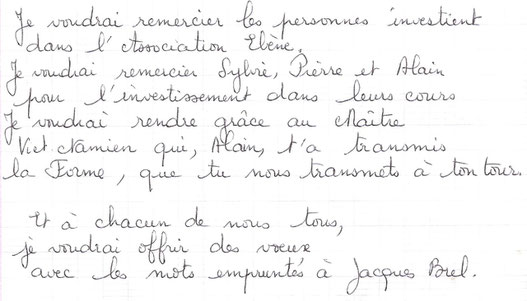 Je voudrai remercier les personnes investient
dans l'Association Ebène.
Je voudrai remercier Sylvie, Pierre et Alain
pour l'investissement dans leurs cours
Je voudrai rendre grâce au Maître
Viet-Namien qui, Alain, t'a transmis
la Forme, que tu nous transmets à ton tour.
Et à chacun de nous tous,
je voudrai offrir des voeux
avec les mots empruntés à Jacques Brel.